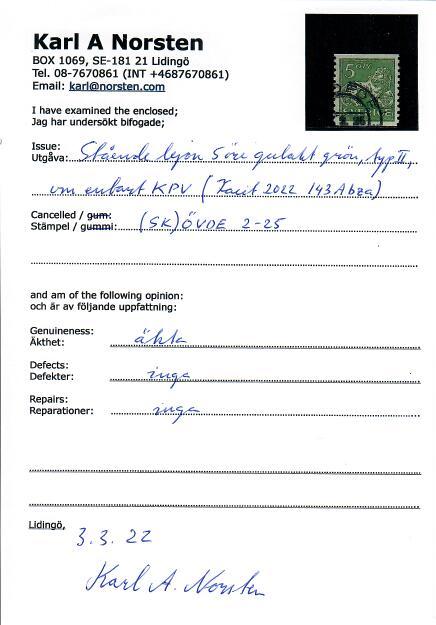 Karl A Norsten
BOX 1069, SE-181 21 Lidingö
Tel. 08-7670861 (INT +4687670861)
Email: karl@norsten.com
I have examined the enclosed;
Jag har undersökt bifogade;
Issue:
Utgåva: Stående lejon 5 öre gulakt grön, typ II,
vm enbart KPV (Facit 2022 143Abza)
Cancelled / gum:
Stämpel / gummi: (SK)ÖVDE 2-25
and am of the following opinion:
och är av följande uppfattning:
Genuineness:
Äkthet: äkta
Defects:
Defekter: inga
Repairs:
Reparationer: inga
Lidingö, 3.3.22
Karl A. Norsten
5 ÖRE
SVERIGE